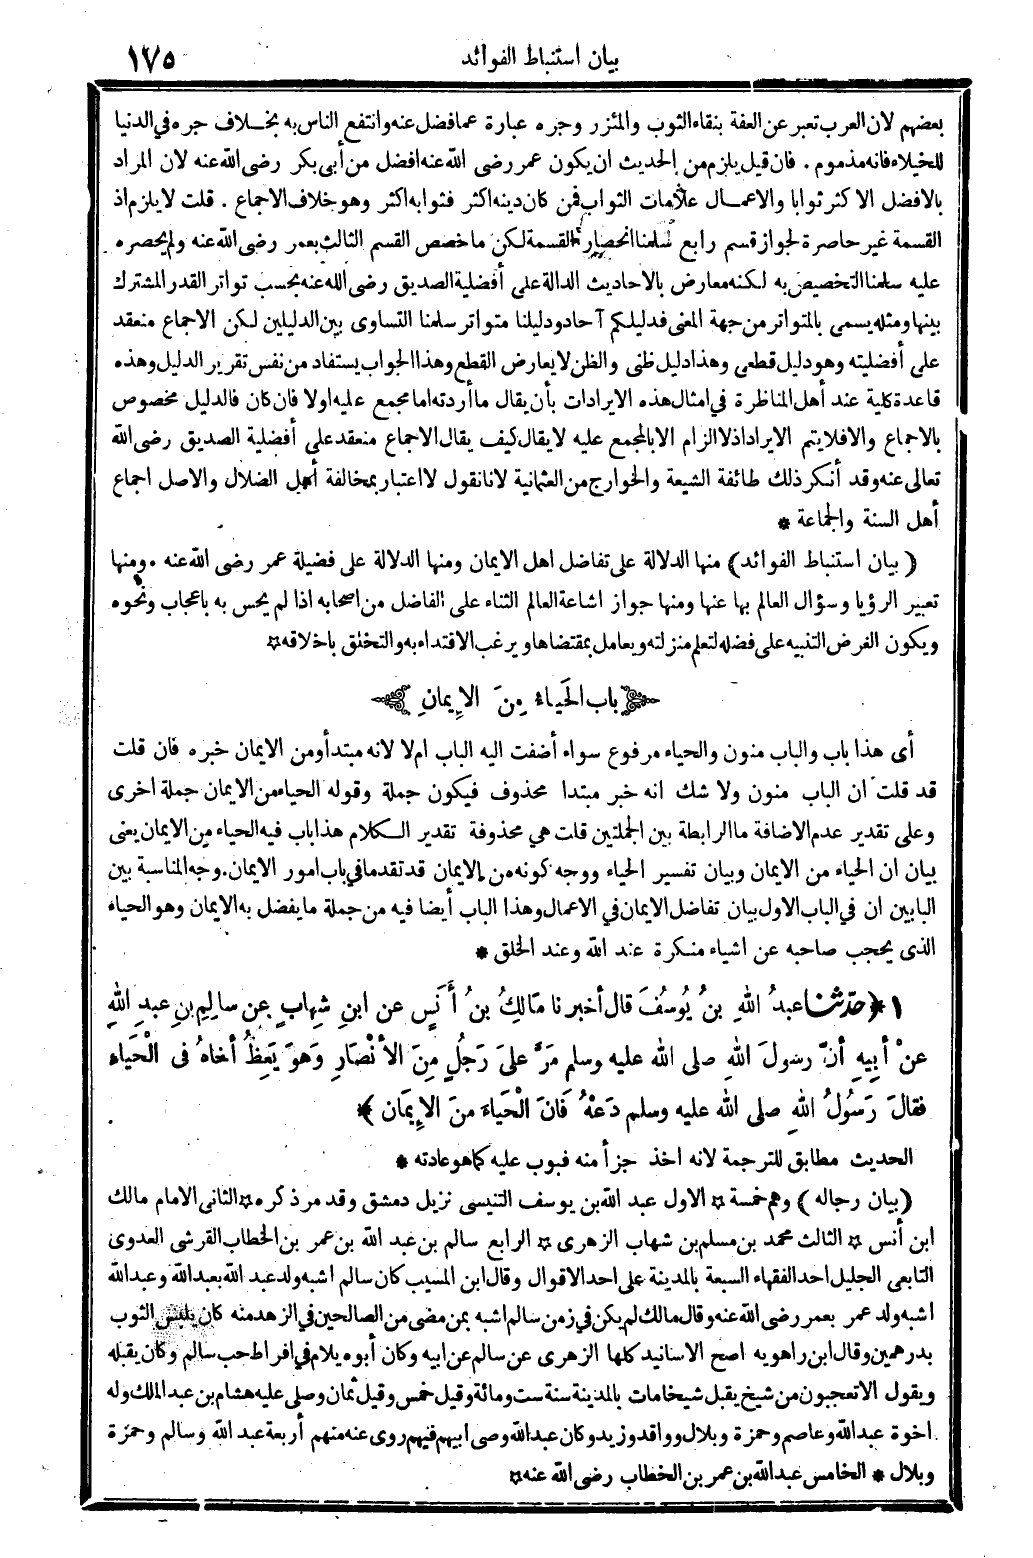 بيان استنباط الفوائد
١٧٥
بعضهم لان العرب تعبر عن العفة بنقاء الثوب والمئزر وجره عبارة عما فضل عنه وانتفع الناس به بخلاف جره فى الدنيا
للخيلاء فانه مذموم . فان قيل يلزم من الحديث ان يكون عمر رضى الله عنه افضل من أبى بكر رضى الله عنه لان المراد
بالافضل الاكثر ثوابا والاعمال علامات الثواب فمن كان دينه اكثر فثوابه اكثر وهو خلاف الاجماع . قلت لا يلزم اذ
القسمة غير حاصرة لجواز قسم رابع سلمنا انحصار القسمة لكن ما خصص القسم الثالث بعمر رضى الله عنه ولم يحصره
عليه سلمنا التخصيص به لكنه معارض بالاحاديث الدالة على أفضلية الصديق رضى الله عنه بحسب تواتر القدر المشترك
بينها ومثله يسمى بالمتواتر من جهة المعنى فدليلكم آحاد ودليلنا متواتر سلمنا التساوى بين الدليلين لكن الاجماع منعقد
على أفضليته وهو دليل قطعى وهذا دليل ظنى والظن لا يعارض القطع وهذا الجواب يستفاد من نفس تقرير الدليل وهذه
قاعدة كلية عند أهل المناظرة فى امثال هذه الايرادات بأن يقال ما أردته اما مجمع عليه اولا فان كان فالدليل مخصوص
بالاجماع والا فلا يتم الايراد اذ لا الزام الا بالمجمع عليه لا يقال كيف يقال الاجماع منعقد على أفضلية الصديق رضى الله
تعالى عنه وقد أنكر ذلك طائفة الشيعة والخوارج من العثمانية لانا نقول لا اعتبار بمخالفة أهل الضلال والاصل اجماع
أهل السنة والجماعة *
( بيان استنباط الفوائد ) منها الدلالة على تفاضل اهل الايمان ومنها الدلالة على فضيلة عمر رضى الله عنه . ومنها
تعبير الرؤيا وسؤال العالم بها عنها ومنها جواز اشاعة العالم الثناء على الفاضل من اصحابه اذا لم يحس به باعجاب ونحوه
ويكون الغرض التنبيه على فضله لتعلم منزلته ويعامل بمقتضاها ويرغب الاقتداء به والتخلق باخلاقه *
باب الحَياءُ مِنَ الإِيمانِ
أى هذا باب والباب منون والحياء مرفوع سواء أضفت اليه الباب ام لا لانه مبتدأ ومن الايمان خبره فان قلت
قد قلت ان الباب منون ولا شك انه خبر مبتدا محذوف فيكون جملة وقوله الحياء من الايمان جملة اخرى
وعلى تقدير عدم الاضافة ما الرابطة بين الجملتين قلت هى محذوفة تقدير الكلام هذا باب فيه الحياء من الايمان يعنى
بيان ان الحياء من الايمان وبيان تفسير الحياء ووجه كونه من الايمان قد تقدما فى باب امور الايمان . وجه المناسبة بين
البابين ان فى الباب الاول بيان تفاضل الايمان فى الاعمال وهذا الباب أيضا فيه من جملة ما يفضل به الايمان وهو الحياء
الذى يحجب صاحبه عن اشياء منكرة عند الله وعند الخلق *
١ ﴿ حدّثنا عبدُ اللهِ بنُ يُوسُفَ قال أخبرنا مَالِكُ بنُ أَنَسٍ عن ابنِ شِهابٍ عن سالِمِ بنِ عبدِ اللهِ
عنْ أبِيهِ أنَّ رسولَ اللهِ صلى الله عليه وسلم مَرَّ علىَ رَجُلٍ مِنَ الأَنْصَارِ وَهوَ يَعِظُ أخاهُ فى الْحَيَاءِ
فقالَ رَسُولُ اللهِ صلى الله عليه وسلم دَعْهُ فَانَ الْحَيَاءَ منَ الإِيمَان ﴾
الحديث مطابق للترجمة لانه اخذ جزأ منه فبوب عليه كما هو عادته *
( بيان رجاله ) وهم خمسة * الاول عبد الله بن يوسف التنيسى نزيل دمشق وقد مر ذكره * الثانى الامام مالك
ابن أنس * الثالث محمد بن مسلم بن شهاب الزهرى * الرابع سالم بن عبد الله بن عمر بن الخطاب القرشى العدوى
التابعى الجليل احد الفقهاء السبعة بالمدينة على احد الاقوال وقال ابن المسيب كان سالم اشبه ولد عبد الله بعبد الله وعبد الله
اشبه ولد عمر بعمر رضى الله عنه وقال مالك لم يكن فى زمن سالم اشبه بمن مضى من الصالحين فى الزهد منه كان يلبس الثوب
بدرهمين وقال ابن راهويه اصح الاسانيد كلها الزهرى عن سالم عن ابيه وكان أبوه يلام فى افراط حب سالم وكان يقبله
ويقول الا تعجبون من شيخ يقبل شيخا مات بالمدينة سنة ست ومائة وقيل خمس وقيل ثمان وصلى عليه هشام بن عبد الملك وله
اخوة عبد الله وعاصم وحمزة وبلال وواقد وزيد وكان عبد الله وصى ابيهم فيهم روى عنه منهم أربعة عبد الله وسالم وحمزة
وبلال * الخامس عبد الله بن عمر بن الخطاب رضى الله عنه *